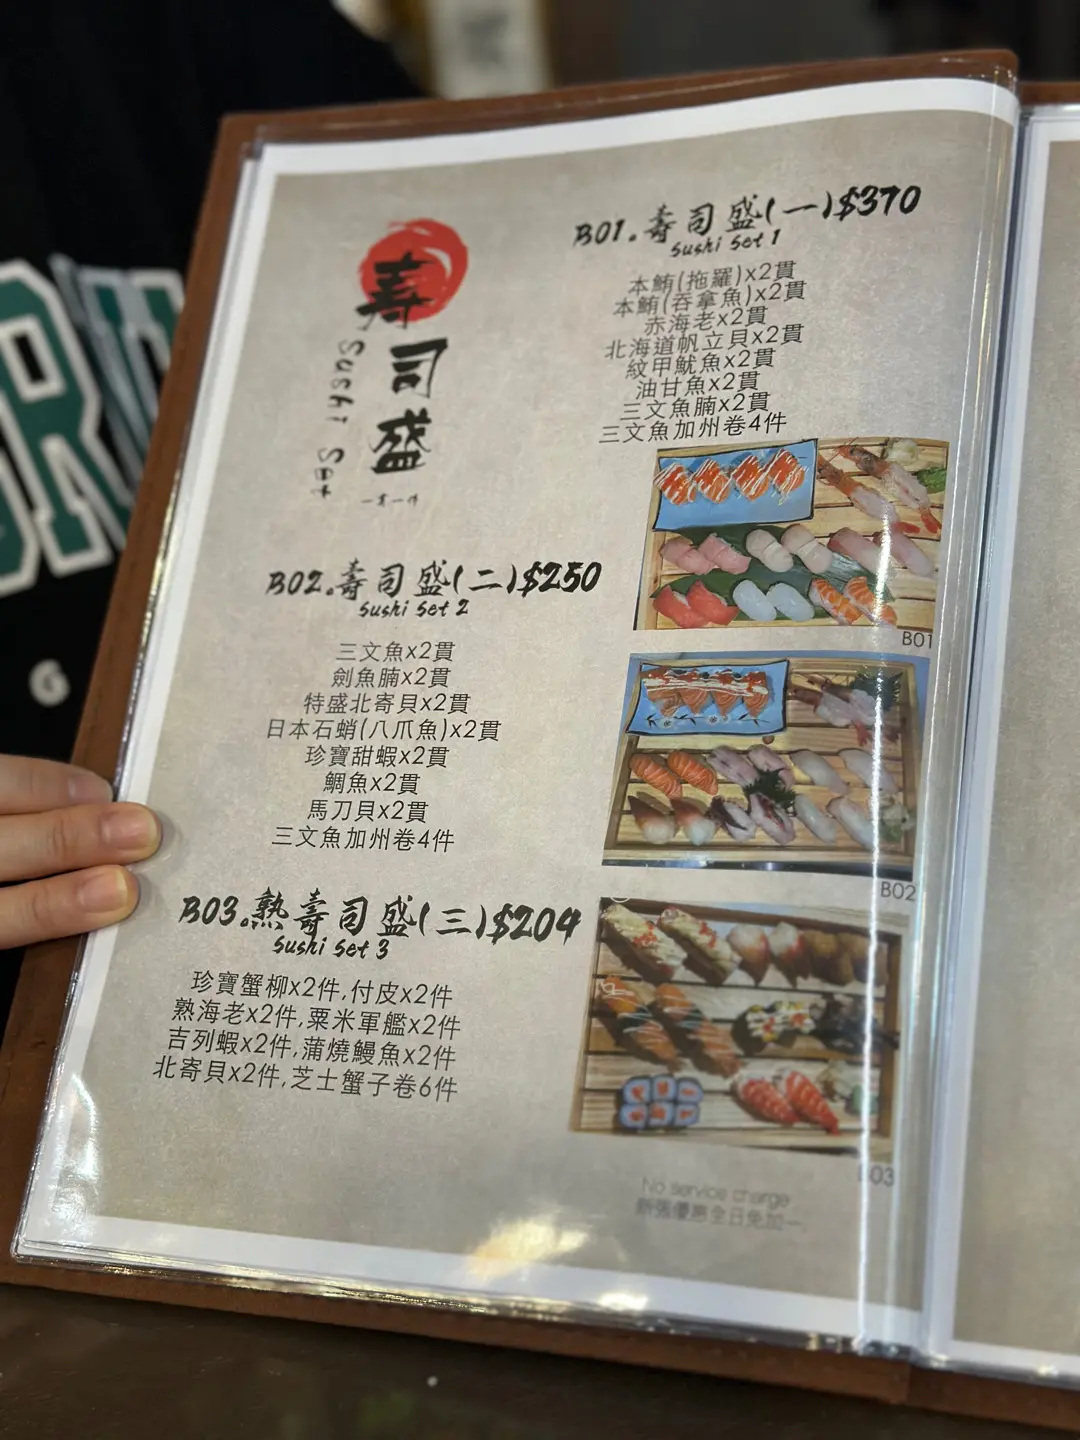 壽司盛
Sushi Set
一貫一件
B01.壽司盛(一)$370
Sushi Set 1
本鮪(拖羅)x2貫
本鮪(吞拿魚)x2貫
赤海老x2貫
北海道帆立貝x2貫
紋甲魷魚x2貫
油甘魚x2貫
三文魚腩x2貫
三文魚加州卷4件
B01
B02.壽司盛(二)$250
Sushi Set 2
三文魚x2貫
劍魚腩x2貫
特盛北寄貝x2貫
日本石蛸(八爪魚)x2貫
珍寶甜蝦x2貫
鯛魚x2貫
馬刀貝x2貫
三文魚加州卷4件
B02
B03.熟壽司盛(三)$204
Sushi Set 3
珍寶蟹柳x2件,付皮x2件
熟海老x2件,粟米軍艦x2件
吉列蝦x2件,蒲燒鰻魚x2件
北寄貝x2件,芝士蟹子卷6件
B03
No service charge
新張優惠全日免加一
G